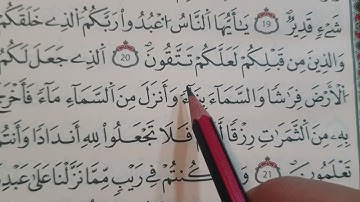 شَىْءٍ قَدِيرٌ ١٩ يَٰٓأَيُّهَا ٱلنَّاسُ ٱعْبُدُوا۟ رَبَّكُمُ ٱلَّذِى خَلَقَكُمْ
وَٱلَّذِينَ مِن قَبْلِكُمْ لَعَلَّكُمْ تَتَّقُونَ 20 ٱلَّذِى جَعَلَ لَكُمُ
ٱلْأَرْضَ فِرَٰشًا وَٱلسَّمَآءَ وَأَنزَلَ مِنَ ٱلسَّمَآءِ مَآءً فَأَخْرَجَ
بِهِۦ مِنَ ٱلثَّمَرَٰتِ رِزْقًا فَلَا تَجْعَلُوا۟ لِلَّهِ أَندَادًا وَأَنتُمْ
تَعْلَمُونَ 21 كُنتُمْ فِى رَيْبٍ مِّمَّا نَزَّلْنَا عَلَىٰ